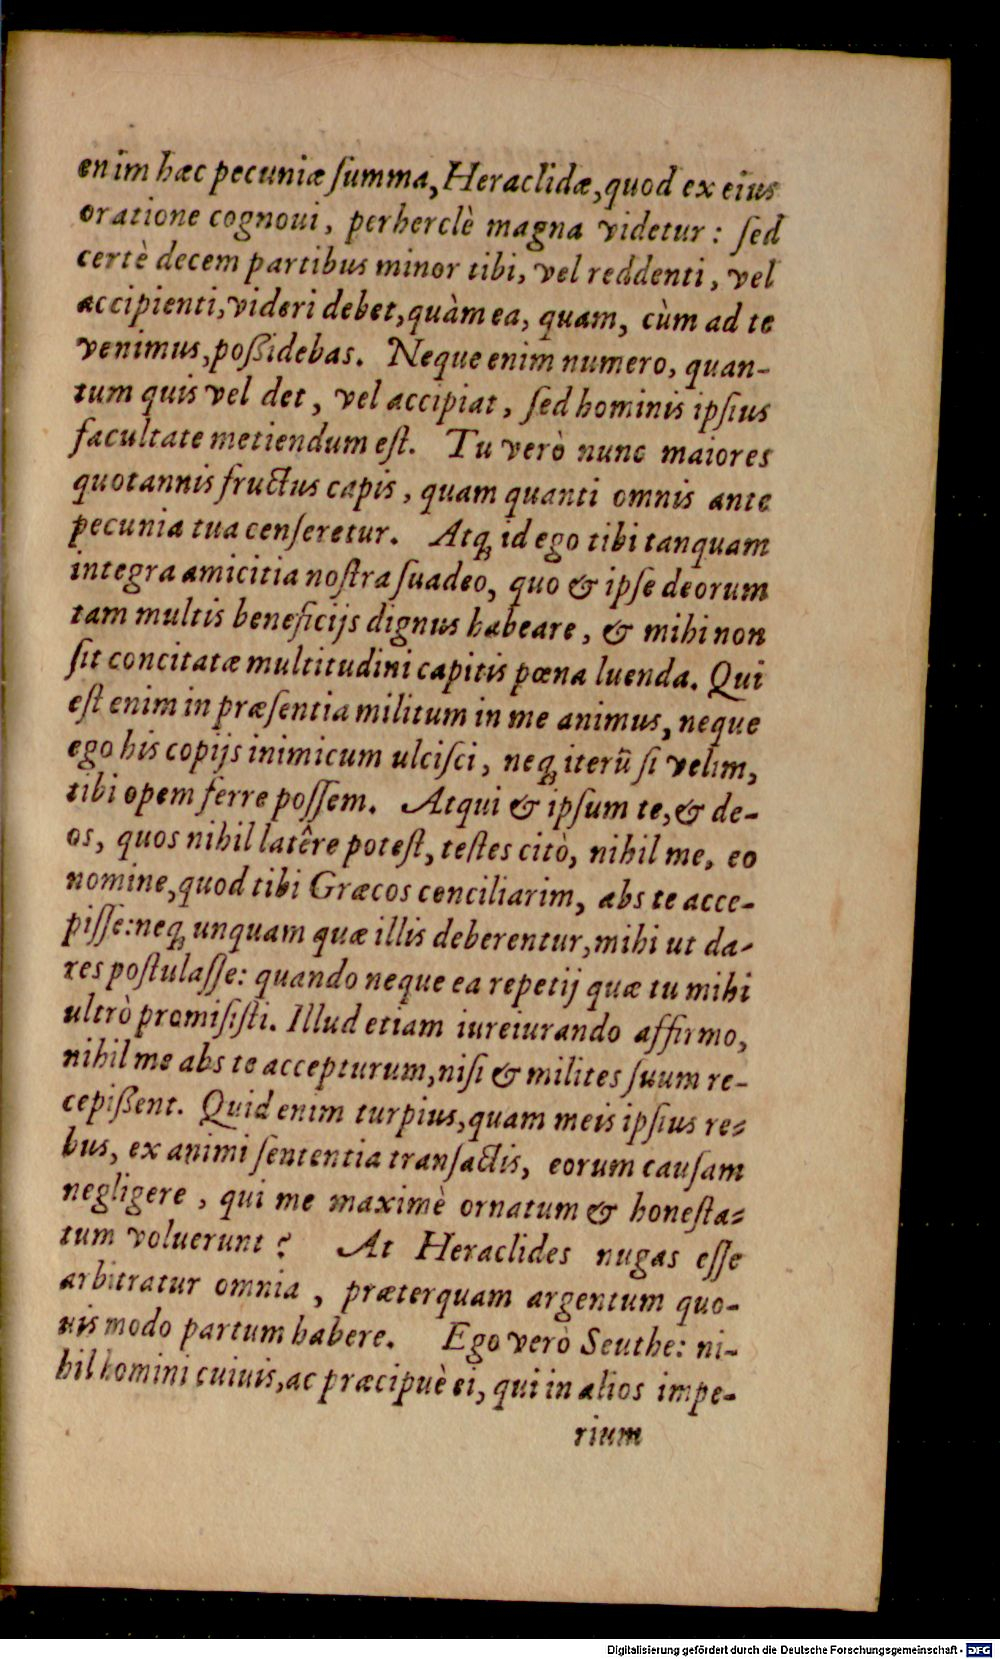 enim hæc pecuniæ ſumma, Heraclidæ, quod ex eius
oratione cognoui, perherclè magna videtur: ſed
certè decem partibus minor tibi, vel reddenti, vel
accipienti, videri debet, quàm ea, quam, cùm ad te
venimus, poßidebas. Neque enim numero, quan-
tum quis vel det, vel accipiat, ſed hominis ipſius
facultate metiendum eſt. Tu verò nunc maiores
quotannis fructus capis, quam quanti omnis ante
pecunia tua cenſeretur. Atq; id ego tibi tanquam
integra amicitia noſtra ſuadeo, quo & ipſe deorum
tam multis beneficijs dignus habeare, & mihi non
ſit concitatæ multitudini capitis pœna luenda. Qui
eſt enim in præſentia militum in me animus, neque
ego his copijs inimicum ulciſci, neq; iterũ ſi velim,
tibi opem ferre poſſem. Atqui & ipſum te, & de-
os, quos nihil latêre poteſt, teſtes citò, nihil me, eo
nomine, quod tibi Græcos conciliarim, abs te acce-
piſſe: neq; unquam quæ illis deberentur, mihi ut da-
res poſtulaſſe: quando neque ea repetij quæ tu mihi
ultrò promiſiſti. Illud etiam iureiurando affirmo,
nihil me abs te accepturum, niſi & milites ſuum re-
cepißent. Quid enim turpius, quam meis ipſius re-
bus, ex animi ſententia tranſactis, eorum cauſam
negligere, qui me maximè ornatum & honeſta-
tum voluerunt? At Heraclides nugas eſſe
arbitratur omnia, præterquam argentum quo-
uis modo partum habere. Ego verò Seuthe: ni-
hil homini cuiuis, ac præcipuè ei, qui in alios impe-
rium
Digitalisierung gefördert durch die Deutsche Forschungsgemeinschaft - DFG